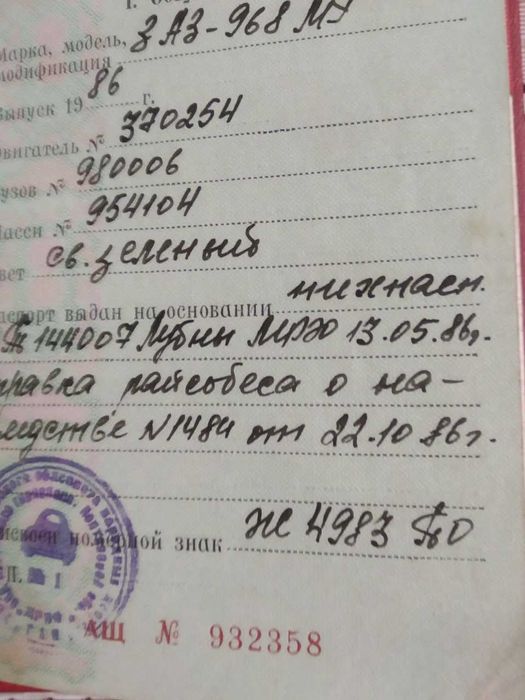 Марка, модель, ЗАЗ-968 МУ
модификация
Выпуск 19 86 г.
Двигатель № 370254
Кузов № 980006
Шасси № 954104
Цвет св. зеленый
Паспорт выдан на основании
144007 Лубны МРЭО 13.05.86г.
справка райсобеса о на-
следстве N1484 от 22.10 86 г.
номерной знак Ж 4983 ПО
АЩ № 932358